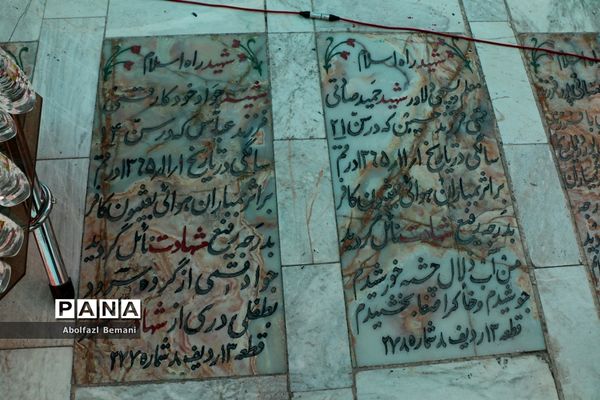 شهید راه اسلام
شهید جواد خودکار قمشی
فرزند عباس که در سن ۱۴
سالگی در تاریخ ۱۳۶۵ در قم
بر اثر بمباران هوائی بعثیون کافر
بدرجه رفیع شهادت نائل گردید
جواد قمشی از گروه
بطفلی درسی از
قطعه ۱۳ ردیف ۸ شماره ۲۷۷
شهید راه اسلام
شهید حمید صادقی
فرزند حسین که در سن ۲۱
سالگی در تاریخ ۱۳۶۵ در قم
بر اثر بمباران هوائی بعثیون کافر
بدرجه رفیع شهادت نائل گردید
من آب زلال چشمه خورشیدم
جوشیدم و خاک را صفا بخشیدم
قطعه ۱۳ ردیف ۸ شماره ۲۷۸
PANA
Abolfazl Bemani